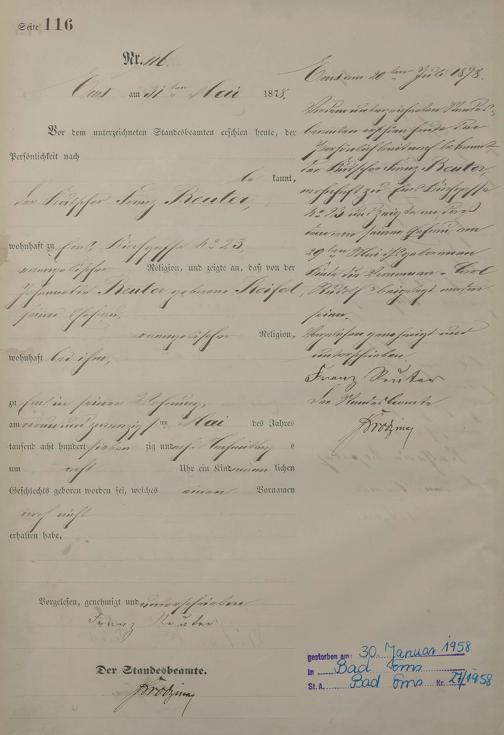 Seite 116
Nr. 116.
Ems am 31ten Mai 1878.
Vor dem unterzeichneten Standesbeamten erschien heute, der
Persönlichkeit nach
be kannt,
der Kutscher Franz Reuter,
wohnhaft zu Ems, No 23
evangelischer Religion, und zeigte an, daß von der
Reuter geborene
seiner Ehefrau,
evangelischer Religion,
wohnhaft bei ihm,
zu Ems in seiner Wohnung,
am neun und zwanzigsten Mai des Jahres
tausend acht hundert siebenzig und acht Nachmittags
um acht Uhr ein Kind männlichen
Geschlechts geboren worden sei, welches einen Vornamen
noch nicht
erhalten habe.
Vorgelesen, genehmigt und unterschrieben
Franz Reuter
Der Standesbeamte.
Ems am 20ten Juli 1878.
Vor dem unterzeichneten Standes-
beamten erschien heute der
Persönlichkeit nach bekannt,
der Kutscher Franz Reuter,
wohnhaft zu Ems
No 23 und zeigte an, daß
seiner Ehefrau am
29ten Mai geborenen
Kinde die Vornamen Carl
Rudolf beigelegt worden
seien.
Vorgelesen genehmigt und
unterschrieben
Franz Reuter
Der Standesbeamte
gestorben am: 30. Januar 1958
in Bad Ems
St. A. Bad Ems Nr. 21/1958